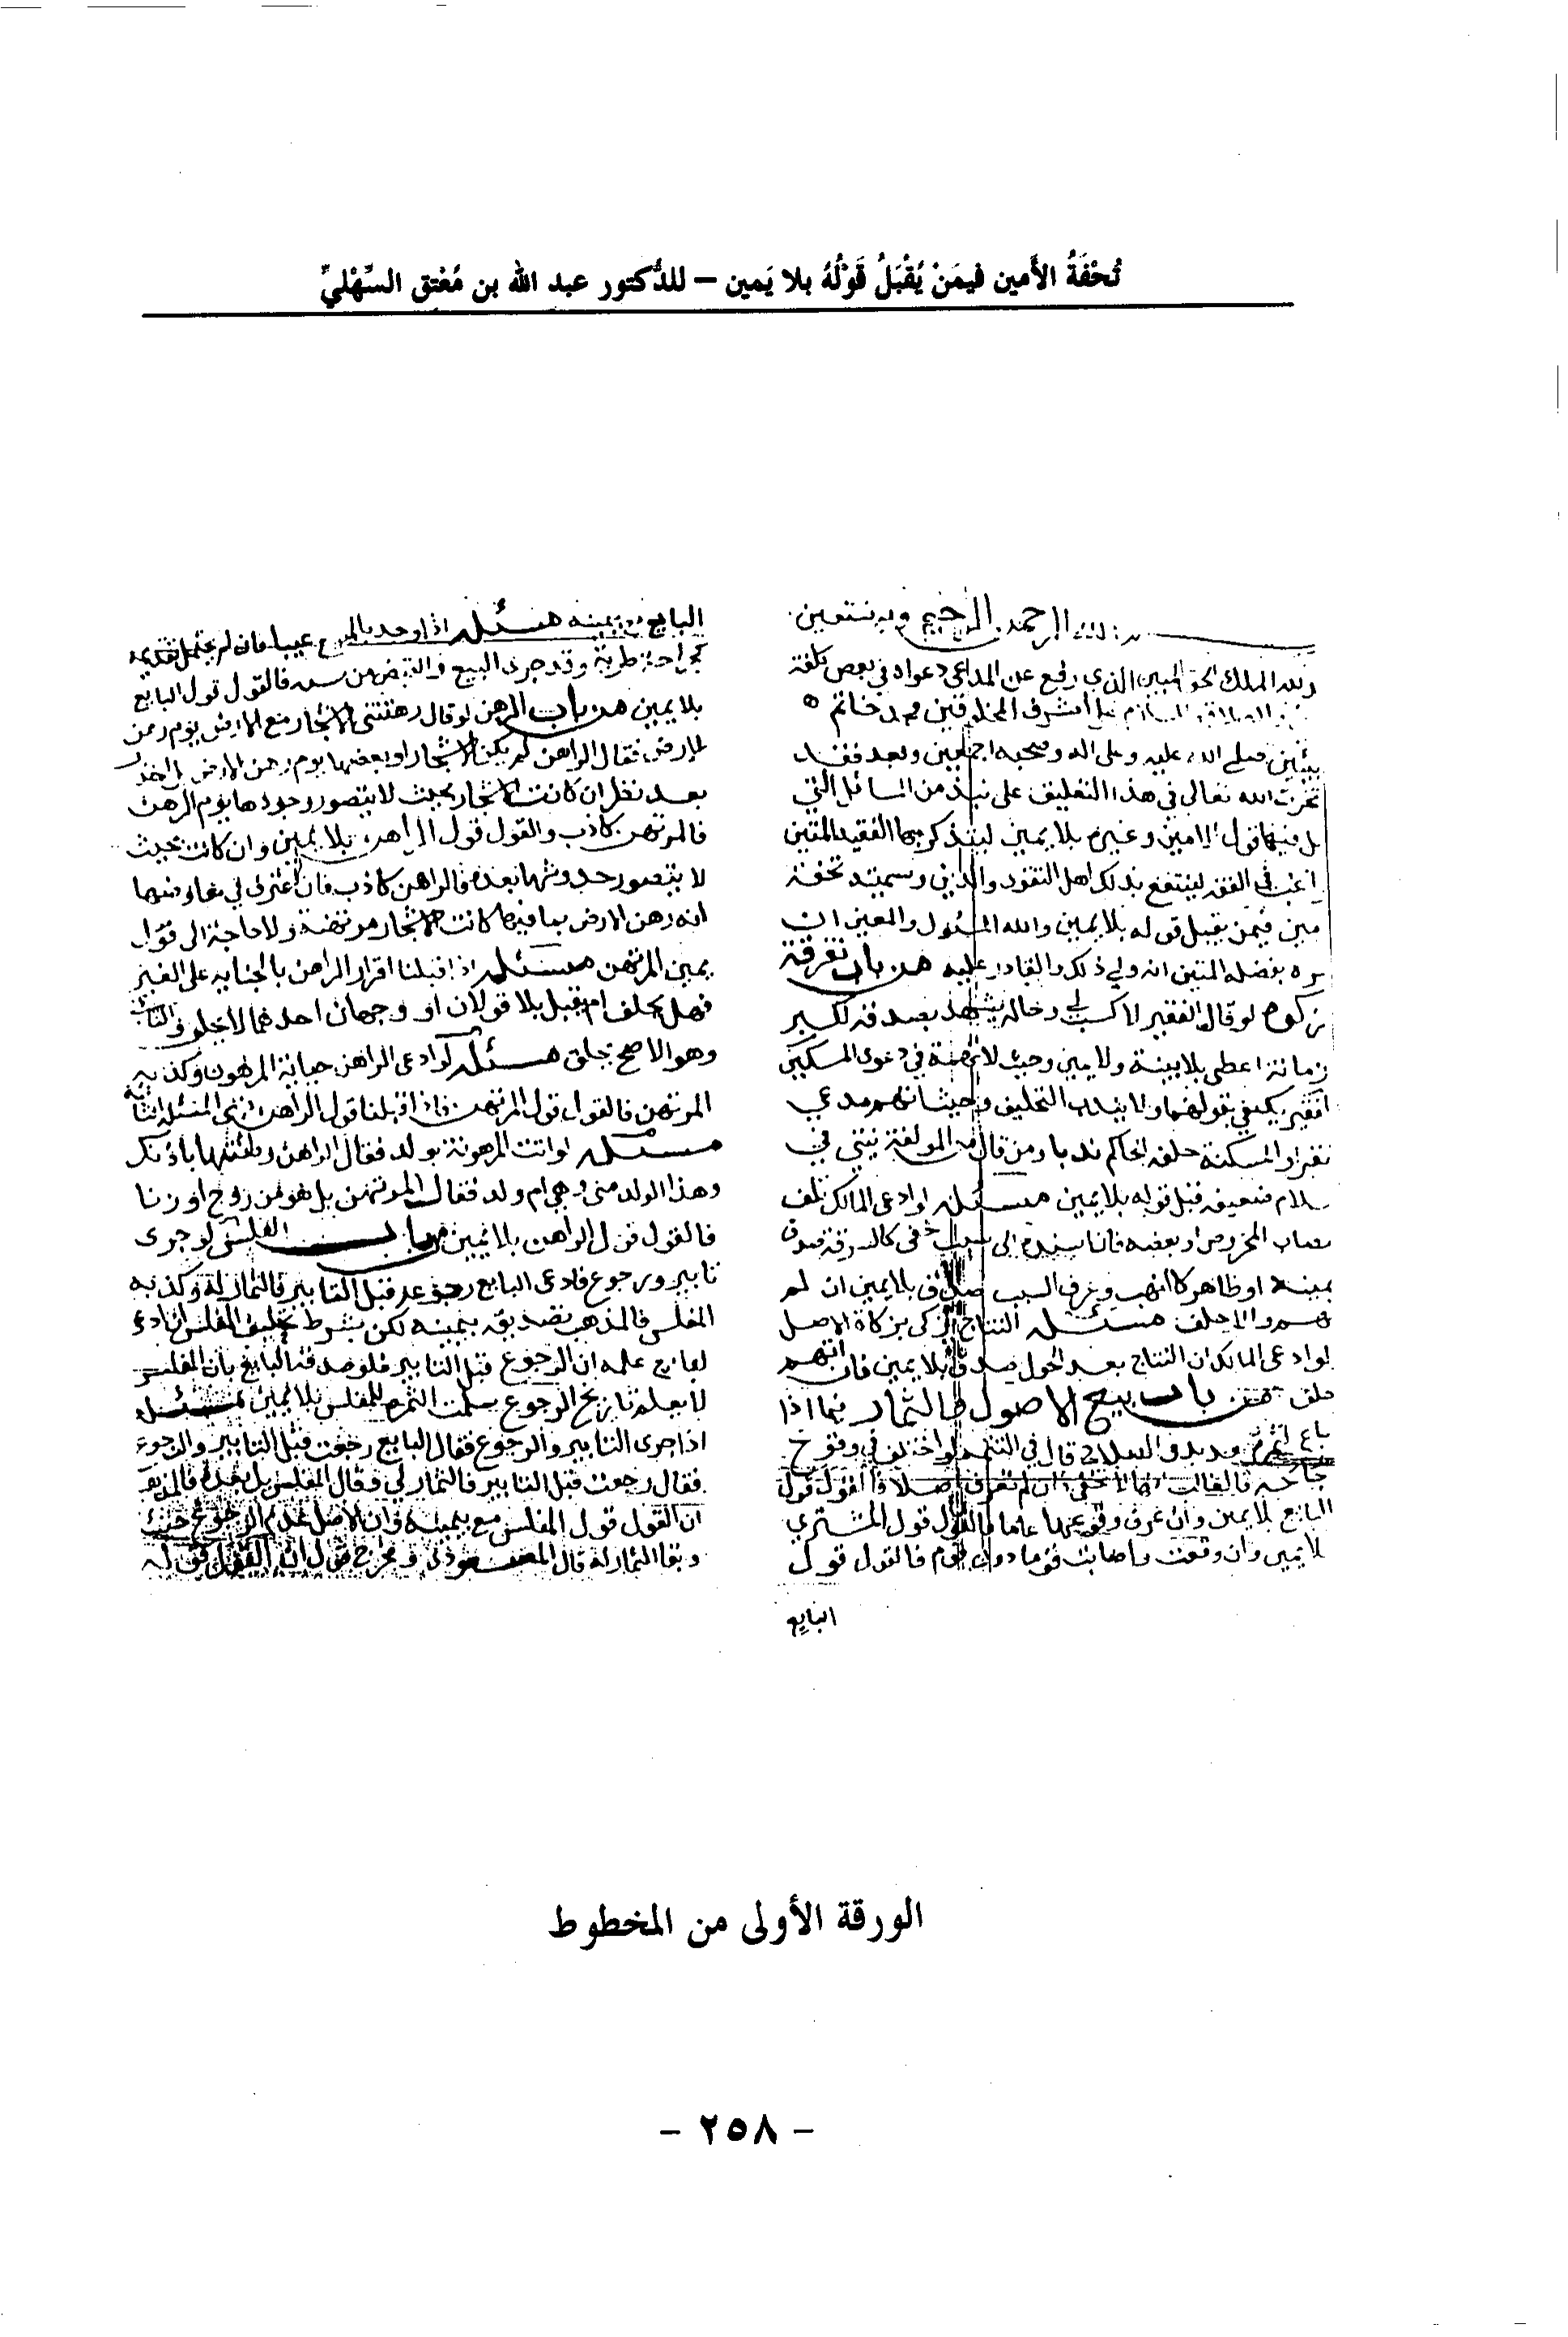 تُحْفَةُ الأَمين فيمَنْ يُقْبَلُ قَوْلُهُ بلا يَمين – للدُّكتور عبد الله بن مُعْتِق السِّهْليِّ
الله الرحمن الرحيم وبه نستعين
لله الملك الحق المبين الذي رفع عن المدعي دعواه في بعض كلفة
على أشرف المخلوقين محمد خاتم
صلى الله عليه وعلى اله وصحبه اجمعين وبعد فقد
الله تعالى في هذا التعليق على نبذ من المسائل التي
فيها قول الامين وغيره بلا يمين ليتذكر بها الفقيه المتين
في الفقه لينتفع بذلك اهل التقوى والدين وسميته تحفة
مين فيمن يقبل قوله بلا يمين والله المسئول والمعين ان
بفضله المتين انه ولي ذلك والقادر عليه من باب تفرقة
لو قال الفقير لا كسب لي وحاله يشهد بصدقه لكبر
زمانة اعطي بلا بينة ولا يمين وحيث لا تهمة في دعوى المسكين
يكفي بقولهما ولا يندب التحليف وحيث اتهم مدعي
او المسكنة حلفه الحاكم ندبا ومن قال من المولفة نيتي في
سلام ضعيفة قبل قوله بلا يمين مسئله لو ادعى المالك تلف
المخروص او بعضه فان اسنده الى سبب خفي كالسرقة صدق
بيمينه او ظاهر كالنهب وعرف السبب صدق بلا يمين ان لم
والا حلف مسئله النتاج يزكى بزكاة الاصل
لو ادعى المالك ان النتاج بعد الحول صدق بلا يمين فان اتهم
حلف من باب بيع الاصول والثمار فيما اذا
باع الثمر بدو الصلاح قال في التتمة لو اختلفا في وقوع
لم تعرف اصلا فالقول قول
البايع بلا يمين وان عرف وقوعها عاما فالقول قول المشتري
بلا يمين وان وقعت واصابت قوما دون قوم فالقول قول
البايع
البايع بيمينه مسئله اذا وجد بالمبيع عيبا فان لم يحتمل تقديمه
كجراحة طرية وقد جرى البيع والقبض من سنة فالقول قول البايع
بلا يمين من باب الرهن لو قال رهنتني الاشجار مع الارض يوم رهن
الارض فقال الراهن لم يكن الاشجار او بعضها يوم رهن الارض
بعد نظر ان كانت الاشجار بحيث لا يتصور وجودها يوم الرهن
فالمرتهن كاذب والقول قول الراهن بلا يمين وان كانت بحيث
لا يتصور حدوثها بعده فالراهن كاذب فان اعترف
انه رهن الارض بما فيها كانت الاشجار مرتهنة ولا حاجة الى قول
يمين المرتهن مسئله اذا قبلنا اقرار الراهن بالجناية على الغير
فهل يحلف ام يقبل بلا قولان او وجهان احدهما لا يحلف والثاني
وهو الاصح يحلف مسئله لو ادعى الراهن جناية المرهون وكذبه
المرتهن فالقول قول المرتهن فاذا قبلنا قول الراهن
مسئله لو اتت المرهونة بولد فقال الراهن وطئتها باذنك
وهذا الولد مني وهي ام ولد فقال المرتهن بل هو من زوج او زنا
فالقول قول الراهن بلا يمين من باب الفلس لو جرى
تابير ورجوع فادعى البايع رجوعه قبل التابير فالثمار له وكذبه
المفلس فالمذهب تصديقه بيمينه لكن بشرط تحليف المفلس
البايع علمه ان الرجوع قبل التابير فلو صدقه البايع بان المفلس
لا يعلم تاريخ الرجوع سلمت الثمرة للمفلس بلا يمين مسئله
اذا جرى التابير والرجوع فقال البايع رجعت قبل التابير والرجوع
فقال رجعت قبل التابير فالثمار لي وقال المفلس بل بعده فالمذهب
ان القول قول المفلس مع يمينه فان الاصل عدم الرجوع حينئذ
وبقا الثمار له قال المسعودي ويخرج قول ان القول قوله
الورقة الأولى من المخطوط
– ٢٥٨ –